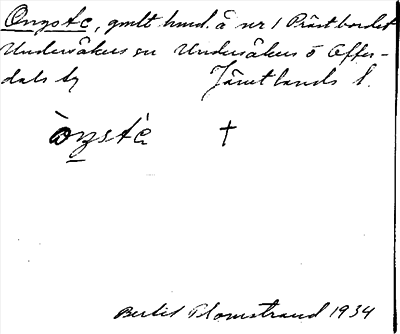 Ongste, gmlt hmd. å nr 1 Prästbordet
Undersåkers sn Undersåkers o Offer-
dals tg Jämtlands l.
òngstè †
Bertil Flemstrand 1934